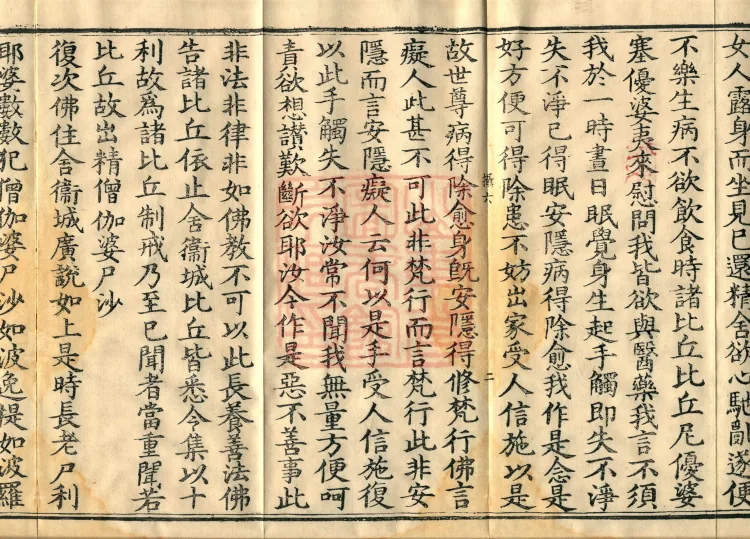 女人露身而坐見已還精舍欲心馳亂遂便
不樂生病不欲飲食時諸比丘比丘尼優婆
塞優婆夷來慰問我皆欲與醫藥我言不須
我於一時晝日眠覺身生起手觸即失不淨
失不淨已得眠安隱病得除愈我作是念是
好方便可得除患不妨出家受人信施以是
攝六 二
故世尊病得除愈身旣安隱得修梵行佛言
癡人此甚不可此非梵行而言梵行此非安
隱而言安隱癡人云何以是手受人信施復
以此手觸失不淨汝常不聞我無量方便呵
責欲想讚歎斷欲耶汝今作是惡不善事此
非法非律非如佛教不可以此長養善法佛
告諸比丘依止舍衞城比丘皆悉令集以十
利故爲諸比丘制戒乃至已聞者當重聞若
比丘故出精僧伽婆尸沙
復次佛住舍衞城廣說如上是時長老尸利
耶婆數數犯僧伽婆尸沙如波逸提如波羅